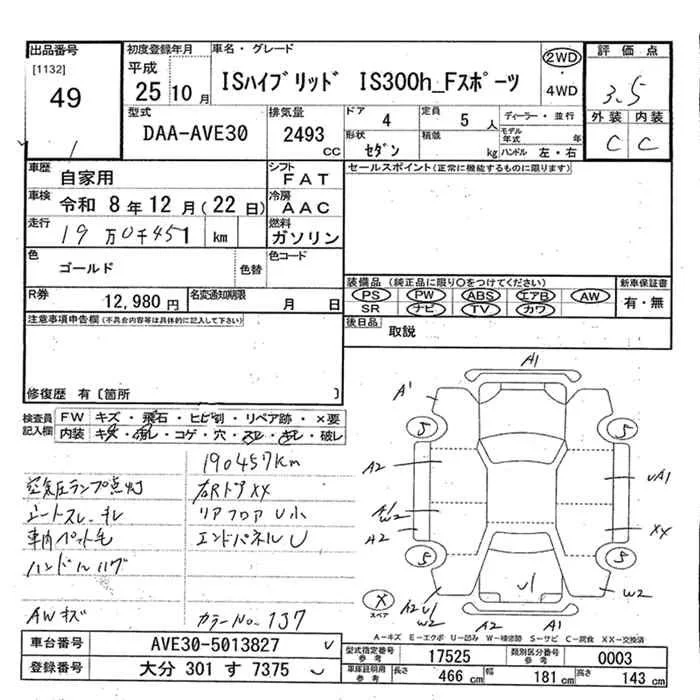 出品番号 初度登録年月 車名・グレード 評価点
[1132] 平成
49 25 10月 ISハイブリッド IS300h_Fスポーツ 2WD・4WD 3.5
型式 排気量 ドア 4 定員 5人 ディーラー・並行 外装 内装
DAA-AVE30 2493cc 形状 セダン 積載 kg モデル年式 年 ハンドル 左・右 C C
車歴 自家用 シフト FAT セールスポイント(正常に機能するものに限ります)
車検 令和 8年 12月(22日) 冷房 AAC
走行 19万0千451 km 燃料 ガソリン
色 ゴールド 色替 色コード
装備品(純正品に限り○をつけてください) 新車保証書
PS PW ABS エアB AW 有・無
SR ナビ TV カワ
R券 12,980円 名変通知期限 月 日
後日品 取説
注意事項申告欄(不具合内容等は具体的に記入して下さい)
修復歴 有〔箇所 〕
検査員記入欄 FW キズ・飛石・ヒビ割・リペア跡・×要
内装 キズ・汚レ・コゲ・穴・スレ・キレ・破レ
190457km
空気圧ランプ点灯 右Rドア XX
シートスレ、キレ リアフロアU小
車内ペット毛 エンドパネルU
AWキズ カラーNo.137
A1
A1
S S
A2 UA1
A1 W2
A2 XX
S S
X スペア
A2 U1 W2 U1 W2
A2 A1
A-キズ E-エクボ U-凹み W-補修跡 S-サビ C-腐食 XX-交換済
車台番号 AVE30-5013827 型式指定番号 参考 17525 類別区分番号 参考 0003
登録番号 大分 301 す 7375 車庫証明用 参考 長さ 466cm 幅 181cm 高さ 143cm